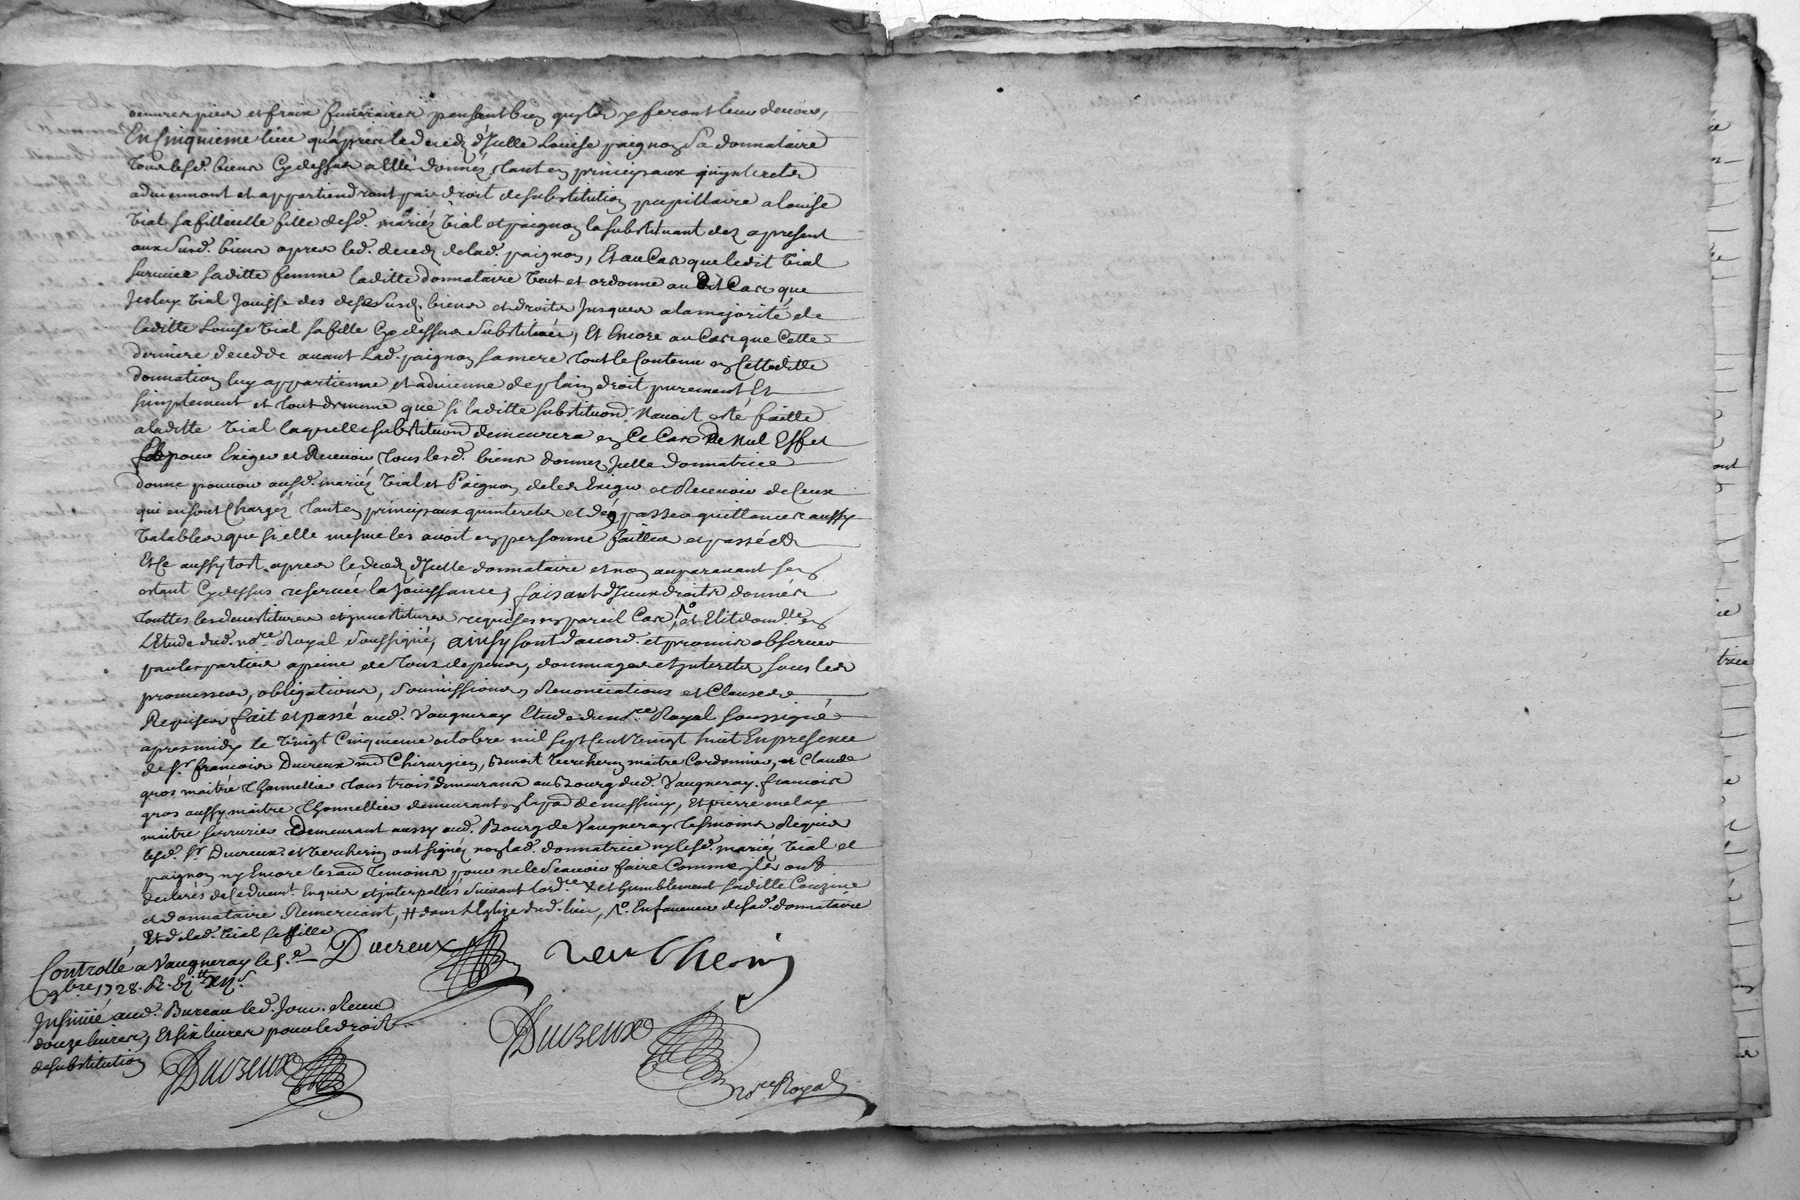 œuvres pies et fraix funeraires pensant bien qu'ils y feront leur devoir,
En Cinquieme lieu qu'apres le deceds d'Icelle Louise paignon Sa donnataire
Tous lesd. biens Cy dessus a Elle donnés, tant en principaux qu'interets
adviennont et appartiendront par droit de substitution pupillaire a louise
Vial sa fillieulle fille desd. mariés Vial et paignon la substituant dez a present
aux Susd. biens apres led. deceds de lad. paignon, Et au Cas que ledit Vial
survive sa ditte femme laditte donnataire Veut et ordonne au dit Cas que
Iceluy Vial Jouisse des susd. biens et droits Jusques a la majorité de
laditte Louise Vial sa fille Cy dessus substituée, Et Encore au Cas que Cette
derniere decedde avant Lad. paignon sa mere tout le Contenu en Cette ditte
donnation luy appartienne et advienne de plain droit purement Et
simplement et tout de meme que si laditte substituon N'avoit esté faitte
a laditte Vial laquelle substituon demeurera en Ce Cas de Nul Effet
pour Exiger et Recevoir tous lesd. biens donnez Icelle donnatrice
donne pouvoir ausd. mariés Vial et Paignon de les Exiger et Recevoir de Ceux
qui en sont Chargés tant en principaux qu'interets et d'en passer quittances aussy
Valables que si elle mesme les avoit en personne faittes et passées
Et Ce aussytost apres le deceds d'Icelle donnataire et non auparavant s'en
estant Cy dessus reservée la Jouissance, faisant d'Iceux droits donnés
touttes les devestitures et investitures requises en pareil Cas, et Elit domlle en
L'Etude dud. nore Royal soussigné, ainsy sont d'accord et promis observer
par les parties a peine de tous depens, dommages et interets sous les
promesses, obligations, soumissions, Renonciations et Clauses
Requises fait et passé aud. Vaugneray Etude du nre Royal soussigné
apres midy le Vingt Cinquieme octobre mil sept Cent vingt huit En presence
de Sr. francois Ducreux md Chirurgien, Benoit Vercherin maitre Cordonnier, et Claude
gros maitre thonnellier tous trois demeurans au Bourg dud. Vaugneray. francois
gros aussy maitre thonnellier demeurant en la par de messimy, Et pierre melay
maitre serrurier demeurant aussy aud. Bourg de Vaugneray tesmoins Requis
lesd. Sr. Ducreux et Vercherin ont signés non lad. donnatrice ny lesd. mariés Vial et
paignon ny Encore les aud temoins pour ne le Scavoir faire Comme ils ont
declarés de Ce duemt Enquis et interpellés suivant l'ordce X et humblement laditte Couzine
et donnataire Remerciant, # dans l'Eglize dud. lieu, No. En faveur de lad. donnataire
Et de lad. Vial sa fille
Controllé a Vaugneray le 5e Ducreux Vercherin
9bre 1728. R.
Insinué aud. Bureau led. Jour. Receu
douze livres, Et six livres pour le droit
de substitution Duvzeux Duvzeux
nore Royal